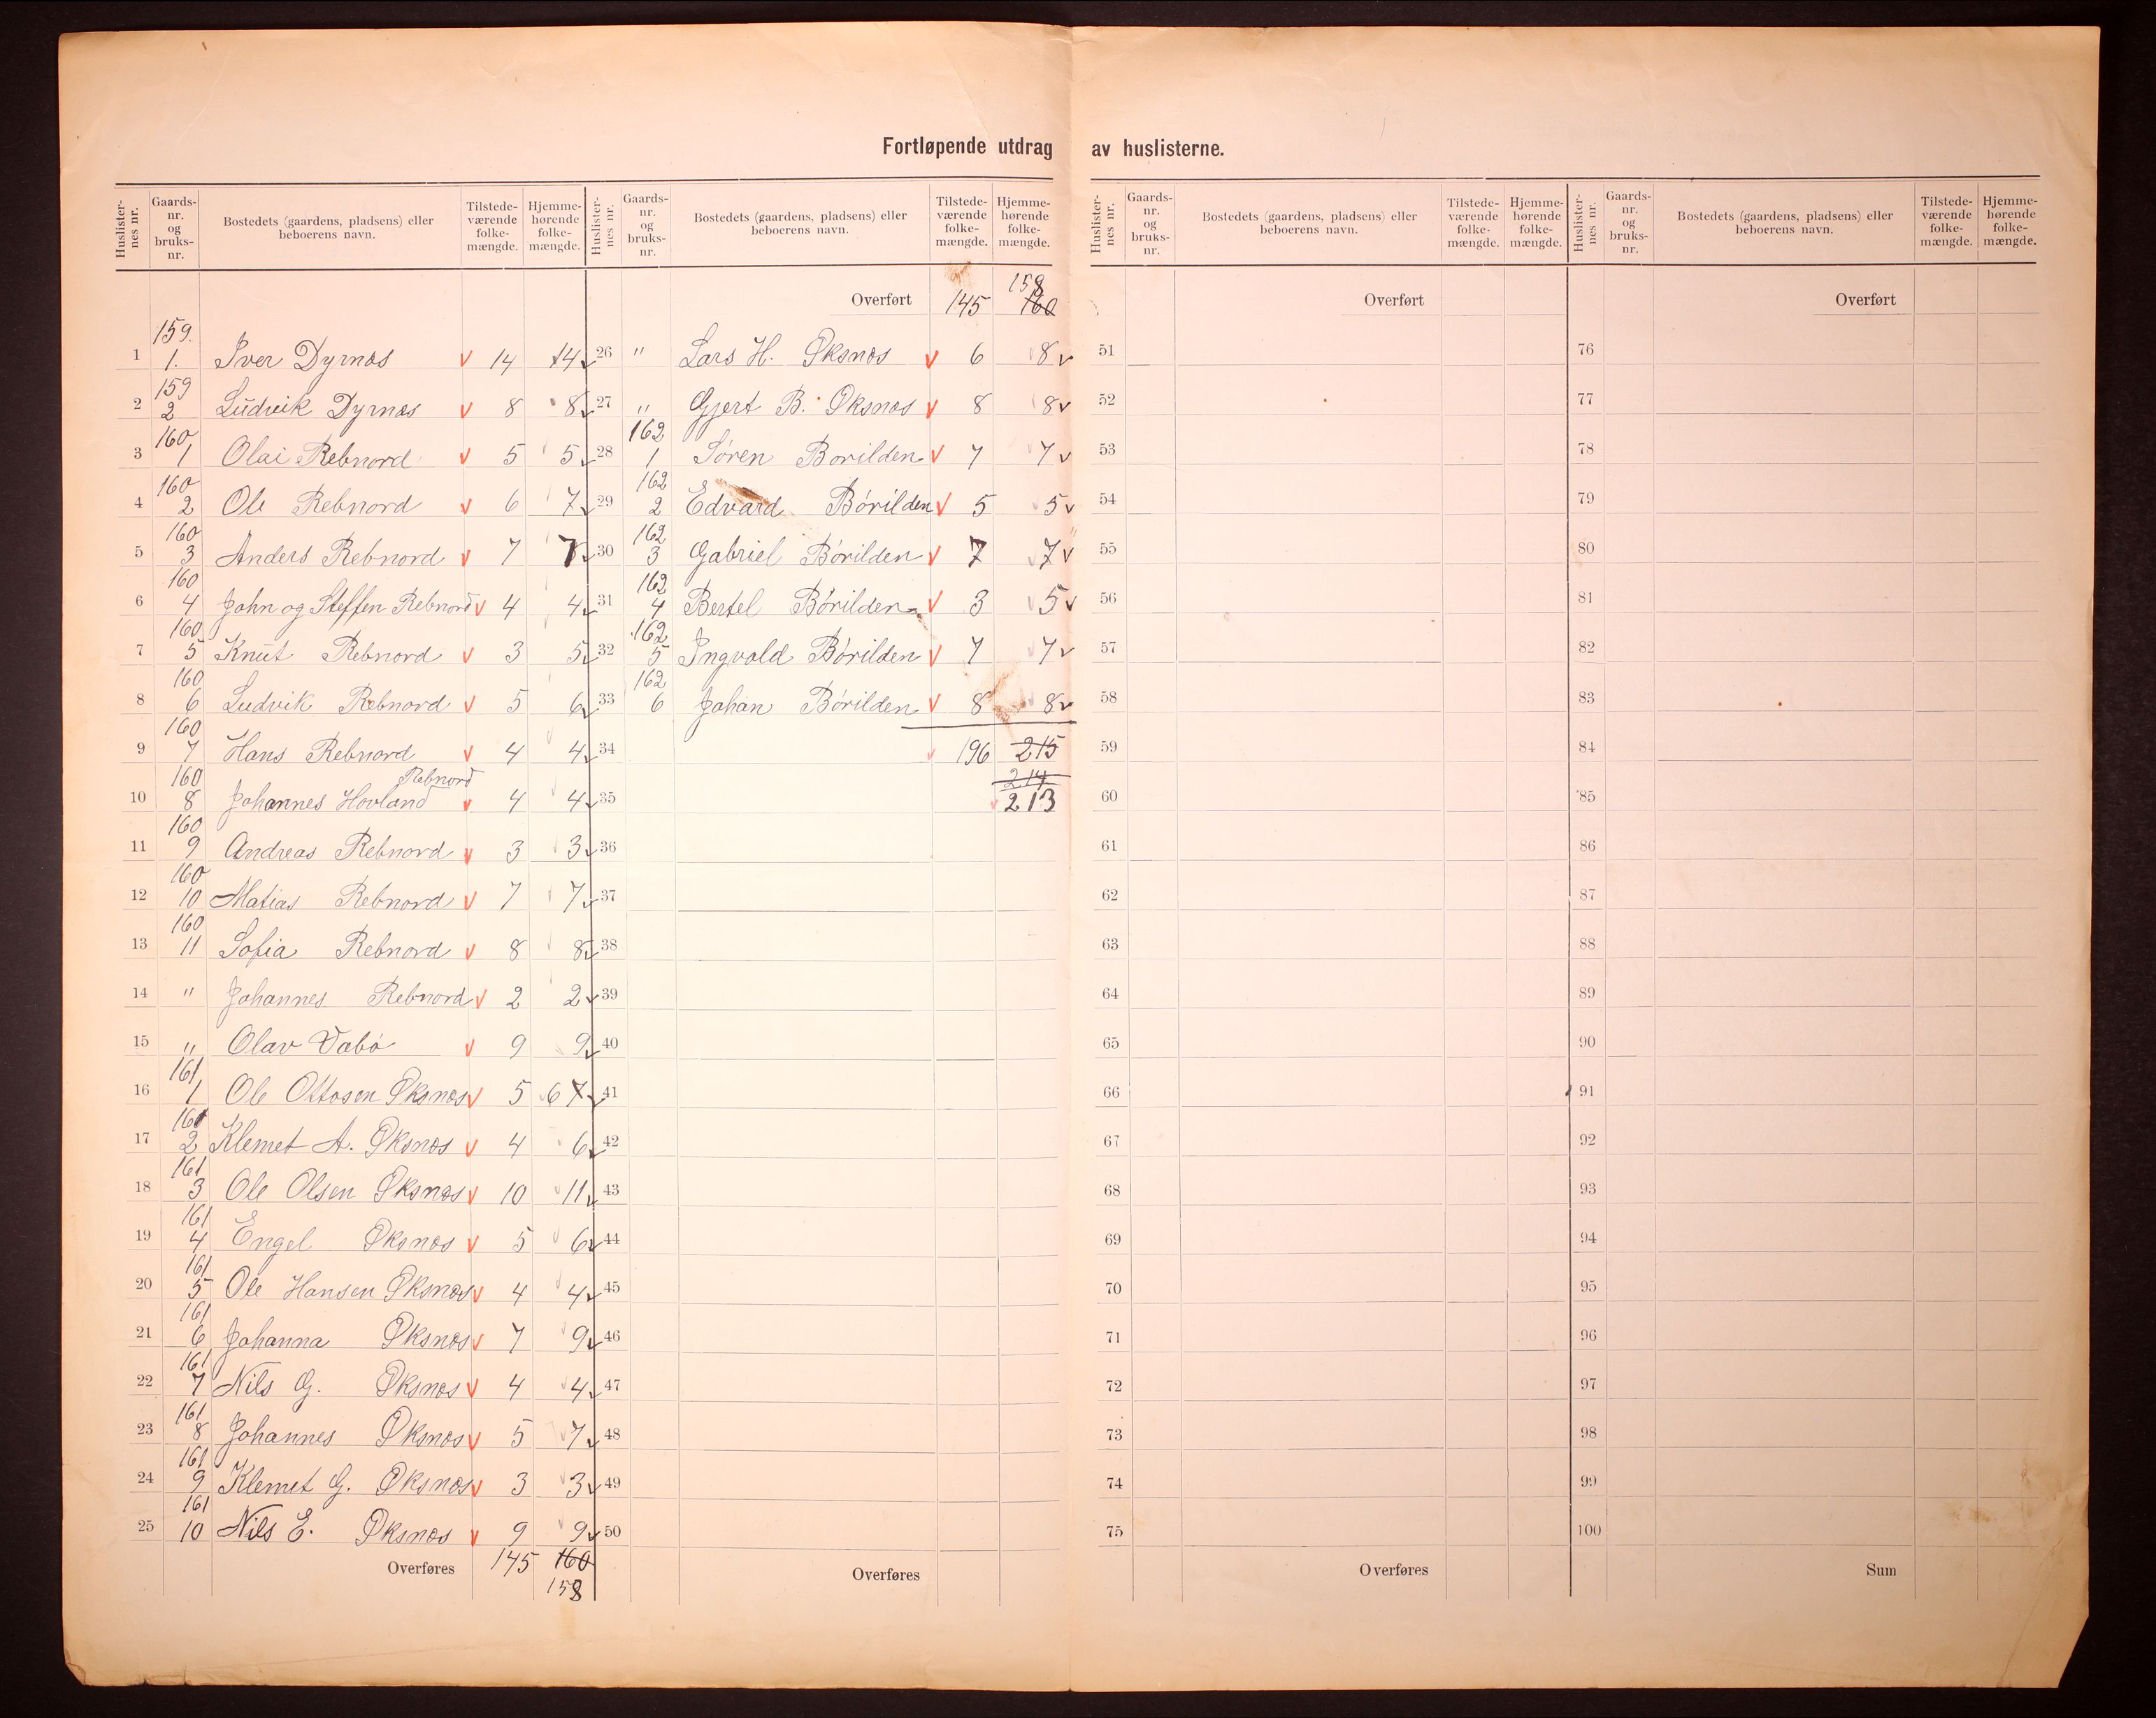 Fortløpende utdrag av huslisterne.
Huslister-nes nr. Gaards-nr. og bruks-nr. Bostedets (gaardens, pladsens) eller beboerens navn. Tilstede-værende folke-mængde. Hjemme-hørende folke-mængde.
1 159. 1. Iver Dyrnæs v 14 14 v
2 159 2 Ludvik Dyrnæs v 8 8 v
3 160 1 Olai Rebnord v 5 5 v
4 160 2 Ole Rebnord v 6 7 v
5 160 3 Anders Rebnord v 7 7 v
6 160 4 John og Steffen Rebnord v 4 4 v
7 160 5 Knut Rebnord v 3 5 v
8 160 6 Ludvik Rebnord v 5 6 v
9 160 7 Hans Rebnord v 4 4 v
Rebnord
10 160 8 Johannes Hovland v 4 4 v
11 160 9 Andreas Rebnord v 3 3 v
12 160 10 Matias Rebnord v 7 7 v
13 160 11 Sofia Rebnord v 8 8 v
14 " Johannes Rebnord v 2 2 v
15 " Olav Vabö v 9 9 v
16 161 1 Ole Ottosen Øksnæs v 5 6 7 v
17 161 2 Klemet A. Øksnæs v 4 6 v
18 161 3 Ole Olsen Øksnæs v 10 11 v
19 161 4 Engel Øksnæs v 5 6 v
20 161 5 Ole Hansen Øksnæs v 4 4 v
21 161 6 Johanna Øksnæs v 7 9 v
22 161 7 Nils G. Øksnæs v 4 4 v
23 161 8 Johannes Øksnæs v 5 7 v
24 161 9 Klemet G. Øksnæs v 3 3 v
25 161 10 Nils E. Øksnæs v 9 9 v
Overføres 145 160
158
Huslister-nes nr. Gaards-nr. og bruks-nr. Bostedets (gaardens, pladsens) eller beboerens navn. Tilstede-værende folke-mængde. Hjemme-hørende folke-mængde.
158
Overført 145 160
26 " Lars H. Øksnæs v 6 8 v
27 " Gjert B. Øksnæs v 8 8 v
28 162 1 Søren Borilden v 7 7 v
29 162 2 Edvard Börilden v 5 5 v
30 162 3 Gabriel Börilden v 7 7 v
31 162 4 Bertel Börilden v 3 5 v
32 162 5 Ingvald Börilden v 7 7 v
33 162 6 Johan Börilden v 8 8 v
34 v 196 215
214
35 213
36
37
38
39
40
41
42
43
44
45
46
47
48
49
50
Overføres
Huslister-nes nr. Gaards-nr. og bruks-nr. Bostedets (gaardens, pladsens) eller beboerens navn. Tilstede-værende folke-mængde. Hjemme-hørende folke-mængde.
Overført
51
52
53
54
55
56
57
58
59
60
61
62
63
64
65
66
67
68
69
70
71
72
73
74
75
Overføres
Huslister-nes nr. Gaards-nr. og bruks-nr. Bostedets (gaardens, pladsens) eller beboerens navn. Tilstede-værende folke-mængde. Hjemme-hørende folke-mængde.
Overført
76
77
78
79
80
81
82
83
84
85
86
87
88
89
90
91
92
93
94
95
96
97
98
99
100
Sum